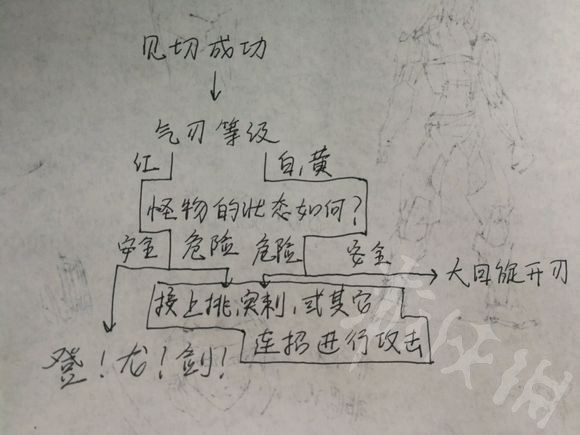 见切成功
气刃等级
红 白,黄
怪物的状态如何?
安全 危险 危险 安全
大回旋开刃
接上挑,突刺,或其它
连招进行攻击
登!龙!剑!